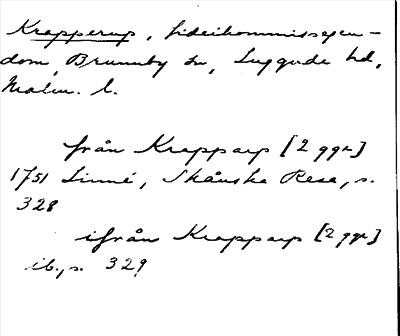 Krapperup, fideikommissegen-
dom, Brunnby sn, Luggude hd,
Malm. l.
från Krapparp [2 ggr]
1751 Linné, Skånska Resa, s.
328
ifrån Krapparp [2 ggr]
ib., s. 329